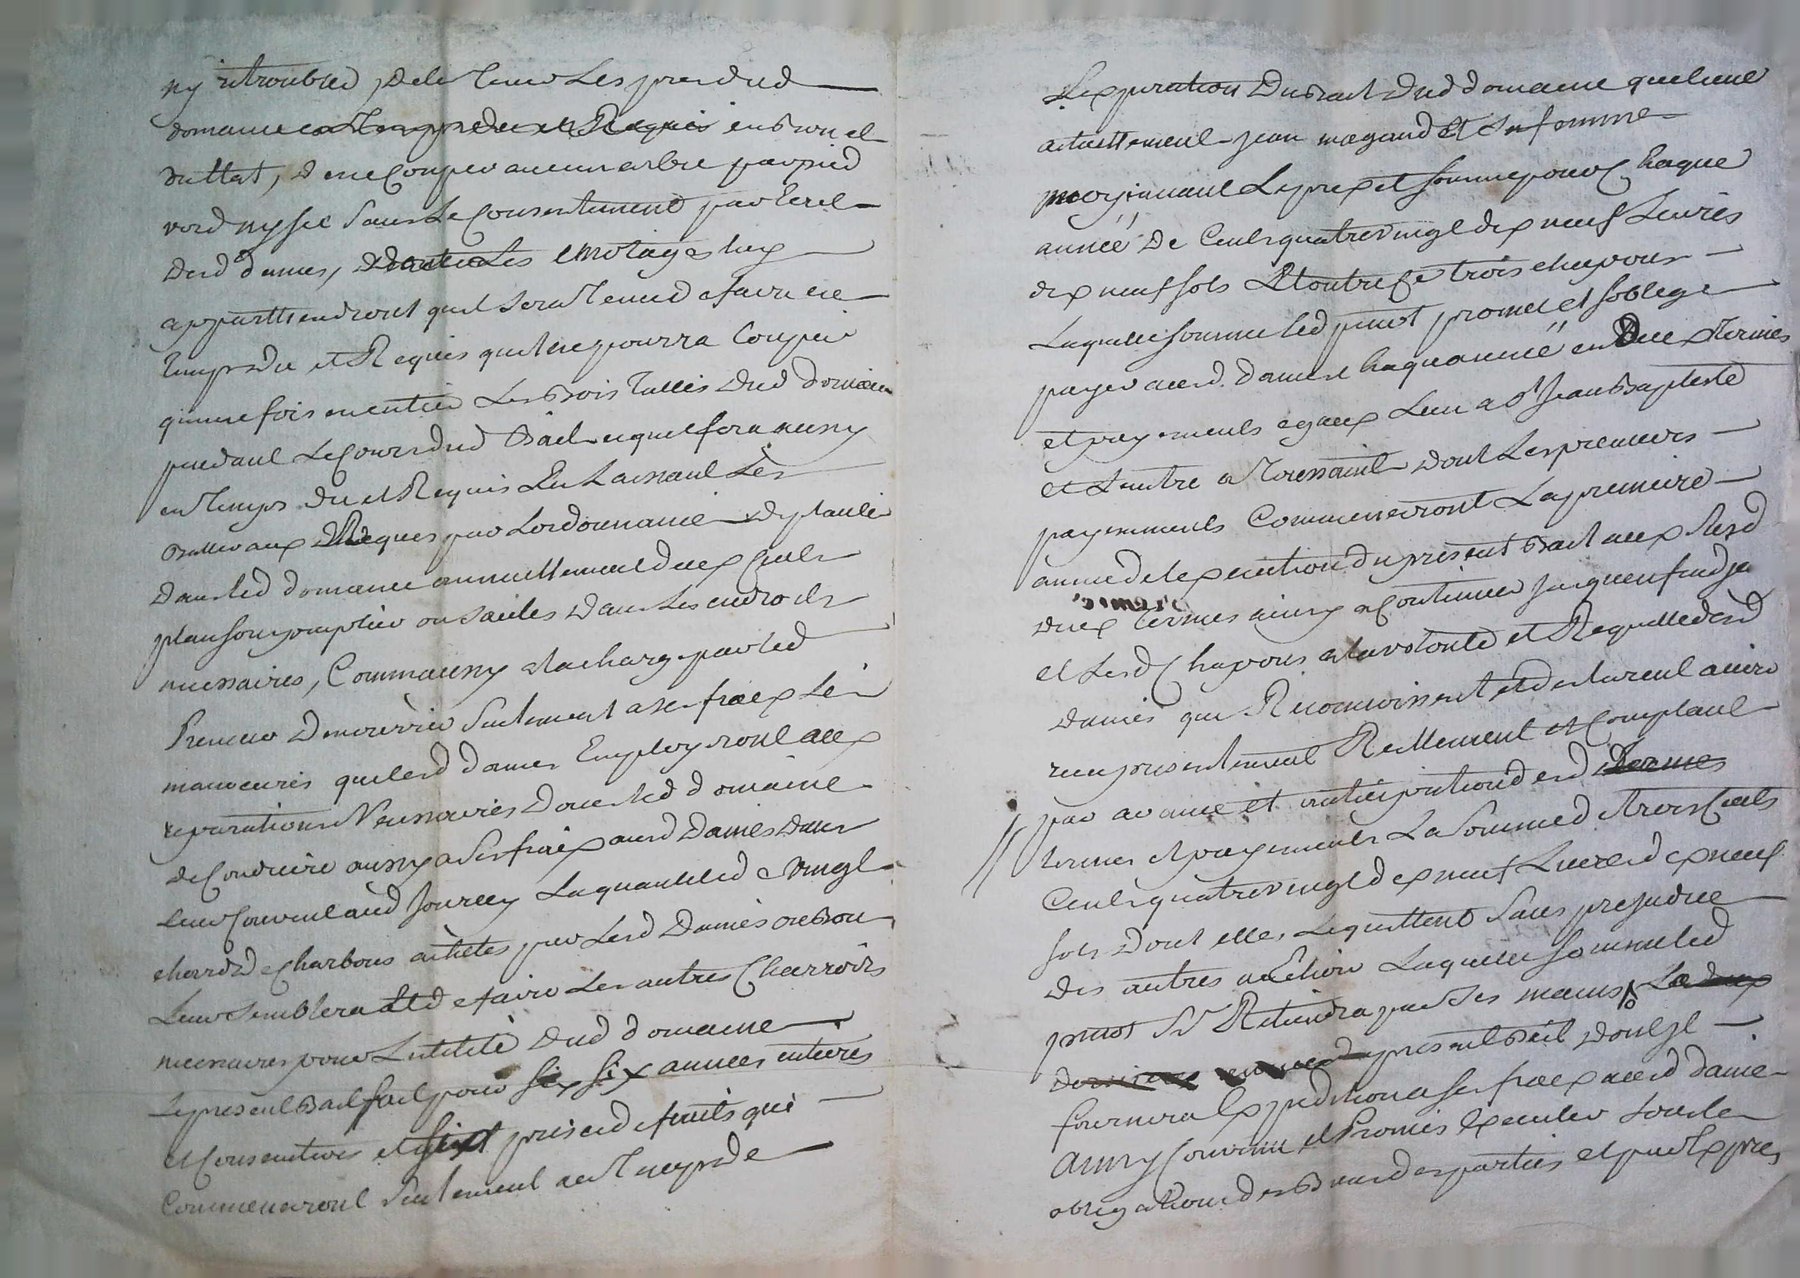 ny troubled de tenir Les pres dud
domaine en temps deu et Requis en bon et
du Etat, de ne Couper aucun arbre par pied
verd ny sec Sans Le Consentement par Ecrit
desd dames, Les emotages luy
appartiendront quil sera tenud e faire en
temps du et Requis quil ne pourra Couper
quune fois en entier Les Bois tallis dud domaine
pendant Le Cours dud Bail ce quil fera aussy
en temps du et Requis En Laissant Les
Balivaux Requis par Lordonnance de planter
dans led domaine annuellement deux Cents
plansons pouplier ou saules dans Les endroits
necessaires, Comm aussy a la charge par led
Preneur de nourrir Seulement a ses fraix Les
manoeuvres que lesd dames Employeront aux
reparations Necessaires dans led domaine
de Conduire aussy a ses fraix ausd Dames dans
Leur Couvent aud La quantité de vingt
charrois de Charbons achetés par Lesd Dames ou Bon
Leur Semblera et de faire Les autres Charrois
necessaires pour Lutilité dud domaine
Le present Bail fait pour six six années entieres
et Consecutives et six prises de fruits qui
Commenceront Seulement au temps de
Lexpiration du Bail dud domaine que tient
actuellement Jean magaud et Sa femme
moyennant Le prix et somme pour Chaque
année de Cents quatre vingt dix neuf Livres
dix neuf sols Et outre Ce trois chapons
Laquelle somme led pinot promet et soblige
payer ausd. dames Chaque année en Deux termes
et payements egaux Lun a St Jean Baptiste
et Lautre a Toussaint dont Les premiers
payements Commenceront La premiere
année de lexecution du present Bail aux susd
deux termes ainsy a Continuer jusquen fin dje
et Lesd Chapons a la volonté et Requette desd
Dames qui Reconnoissent et declarent avoir
receu presentement Reellement et Comptant
par avance et anticipation desd termes
termes et payements La Somme de trois Cents
Cents quatre vingt dix neuf Livres dix neuf
sols dont elles Le quittent Sans prejudice
des autres a Echoir Laquelle somme led
pinot Sr Retiendra par Ses mains La deux
derniere present Bail dont Il
fournira Expedition a ses fraix ausd dames
Ainsy Convenu et Promis Executer Sous les
obligations des Biens des parties et par Expres